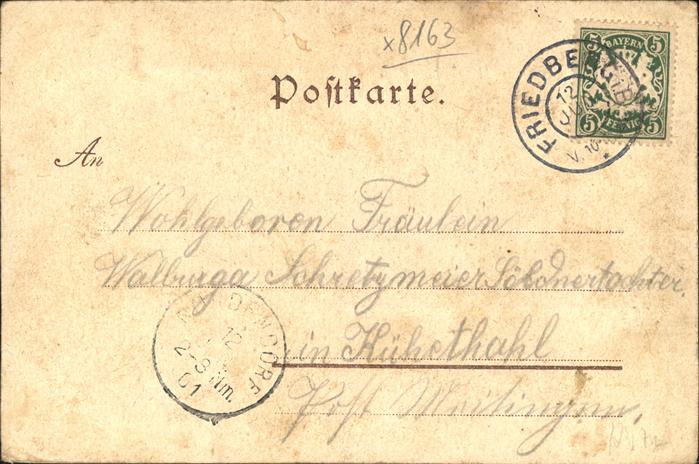 x8163
Postkarte.
5 BAYERN 5
5 PFENNIG 5
FRIEDBERG
12
V. 10
An
Wohlgeboren Fräulein
Walburga Schretzmeier Söldnertochter.
in Hühethahl
Post
DENDORF
12
2-3 Nm.
01